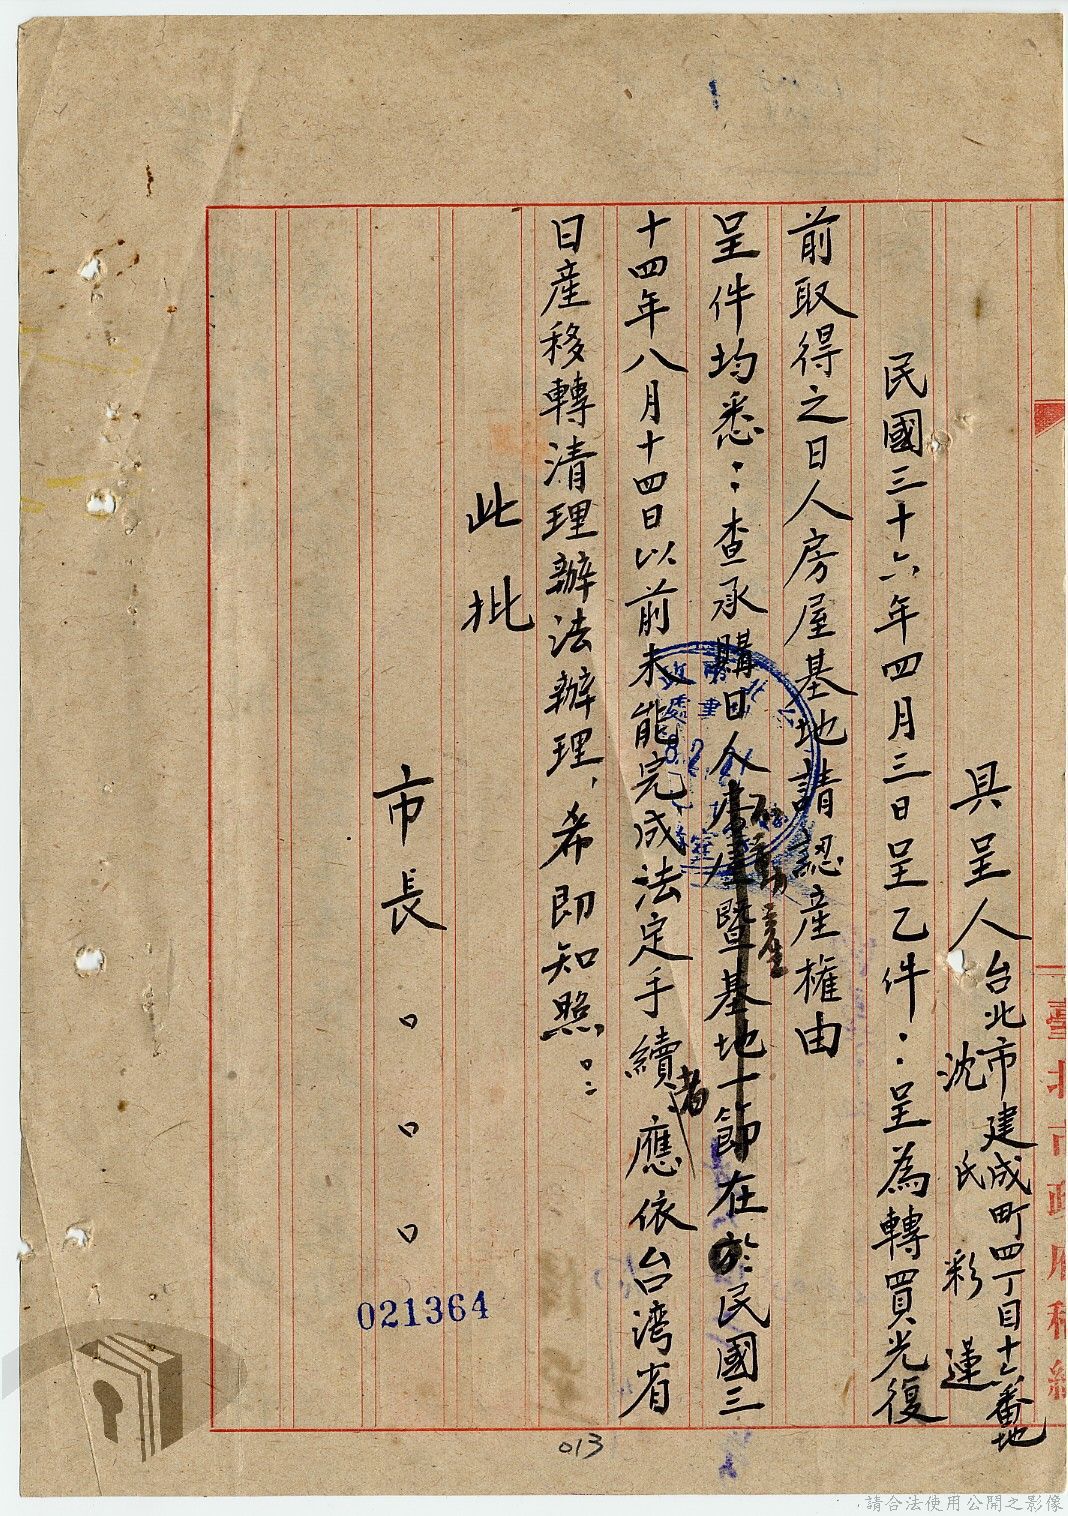 具呈人台北市建成町四丁目十六番地
沈氏彩蓮
民國三十六年四月三日呈乙件：呈為轉買光復
前取得之日人房屋基地請認産權由
呈件均悉：查承購日人房屋暨基地一節在於民國三
不動产
十四年八月十四日以前未能完成法定手續者應依台湾省
日産移轉清理辦法辦理，希即知照。
此批
市長
021364
013
請合法使用公開之影像